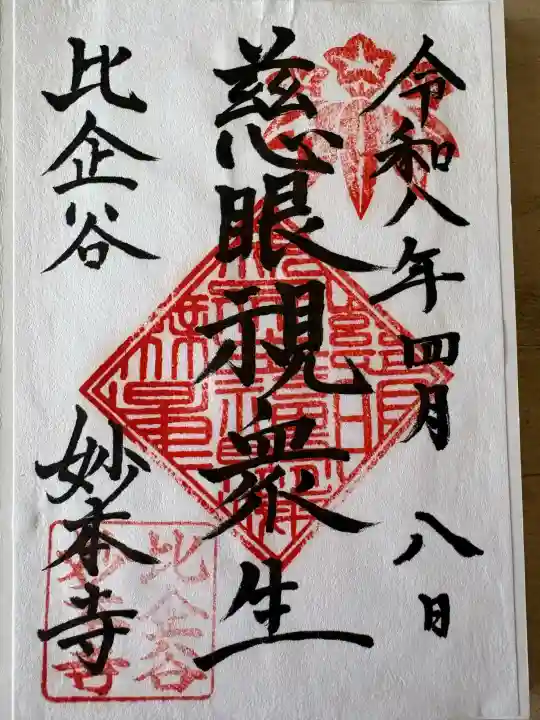 令和八年四月八日
慈眼視衆生
比企谷 妙本寺
比企谷
妙本寺